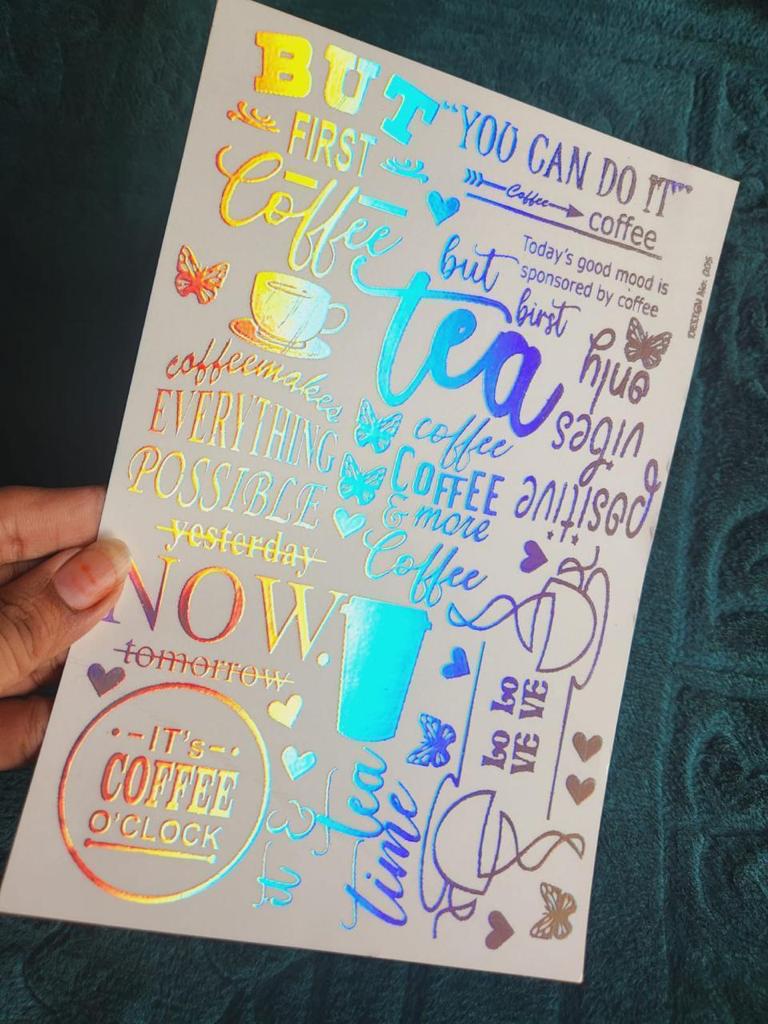 BUT
FIRST
Coffee
"YOU CAN DO IT"
Coffee
coffee
Today's good mood is
sponsored by coffee
DESIGN No: 005
but
birst
tea
only
vibes
positive
coffeemakes
EVERYTHING
POSSIBLE
coffee
COFFEE
& more
Coffee
yesterday
NOW.
tomorrow
LO LO
VE VE
IT's
COFFEE
O'CLOCK
tea
time